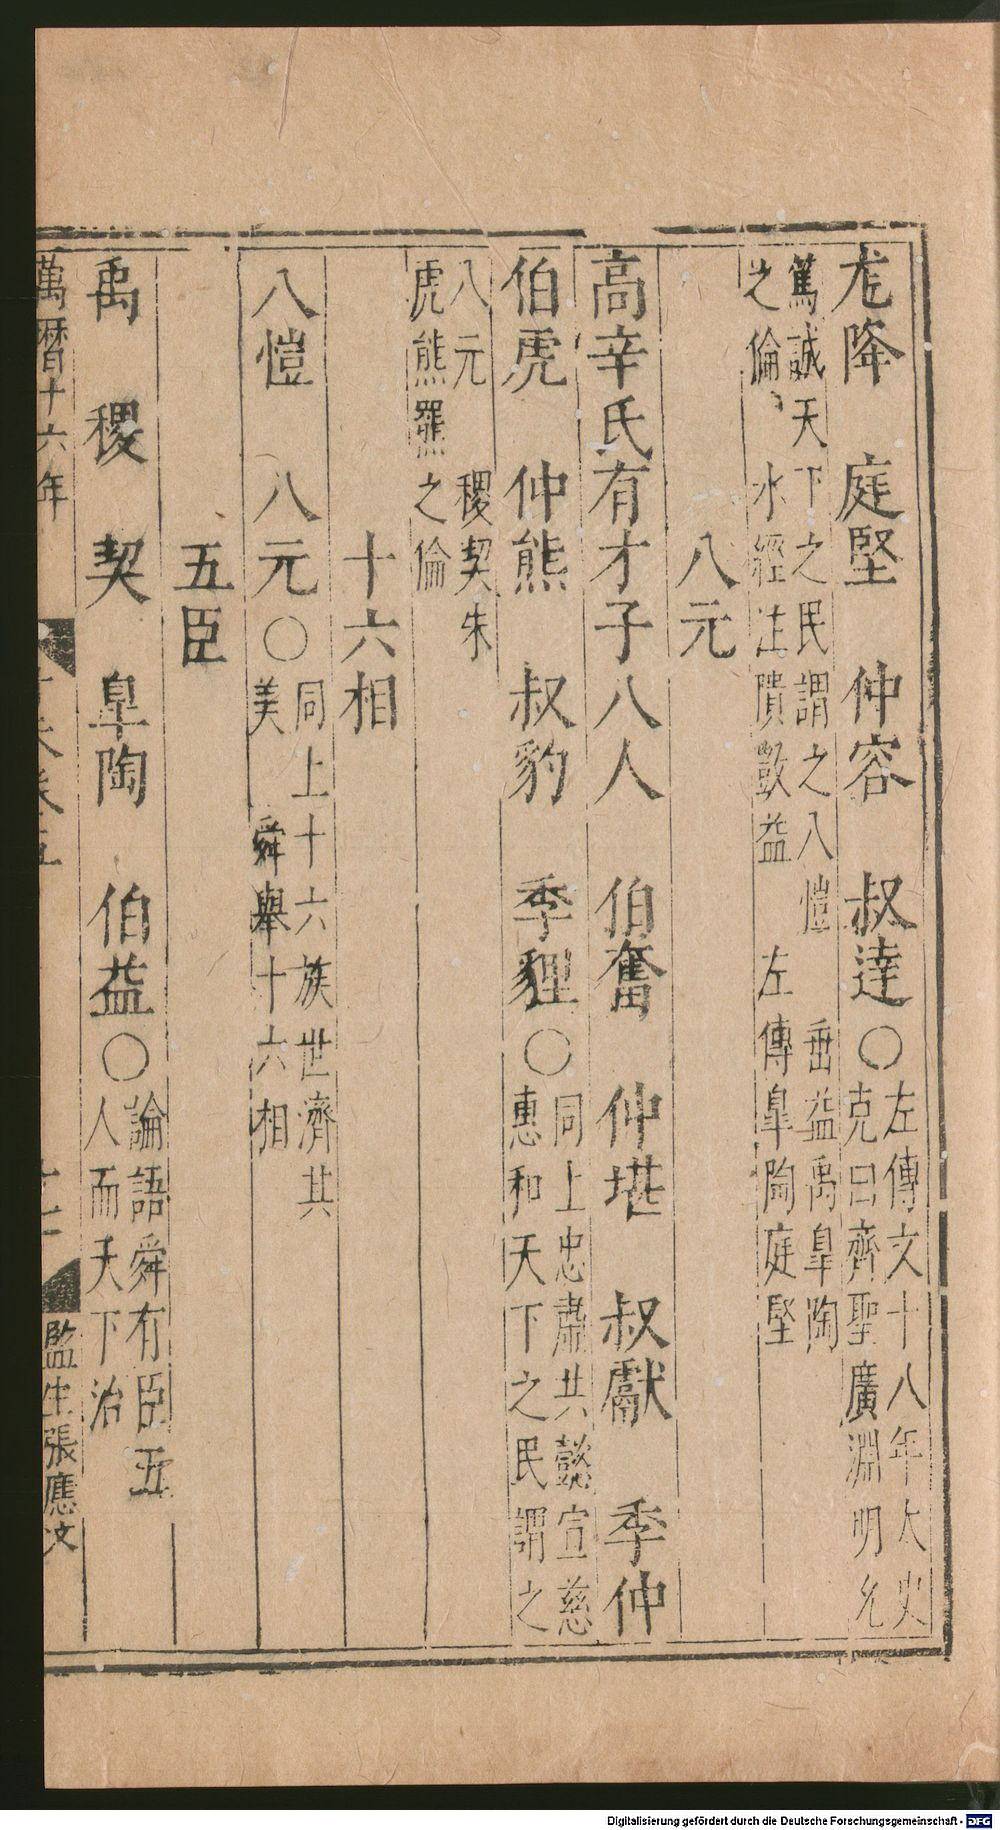 尨降　庭堅　仲容　叔達○左傳文十八年大史
克曰齊聖廣淵明允
篤誠天下之民謂之八愷　垂益禹臯陶
之倫　水經注隤敳益　左傳臯陶庭堅
八元
高辛氏有才子八人　伯奮　仲堪　叔獻　季仲
伯虎　仲熊　叔豹　季貍○同上忠肅共懿宣慈
惠和天下之民謂之
八元　稷契朱
虎熊羆之倫
十六相
八愷　八元○同上十六族世濟其
美　舜舉十六相
五臣
禹　稷　契　臯陶　伯益○論語舜有臣五
人而天下治
萬曆十六年
監生張應文
Digitalisierung gefördert durch die Deutsche Forschungsgemeinschaft - DFG